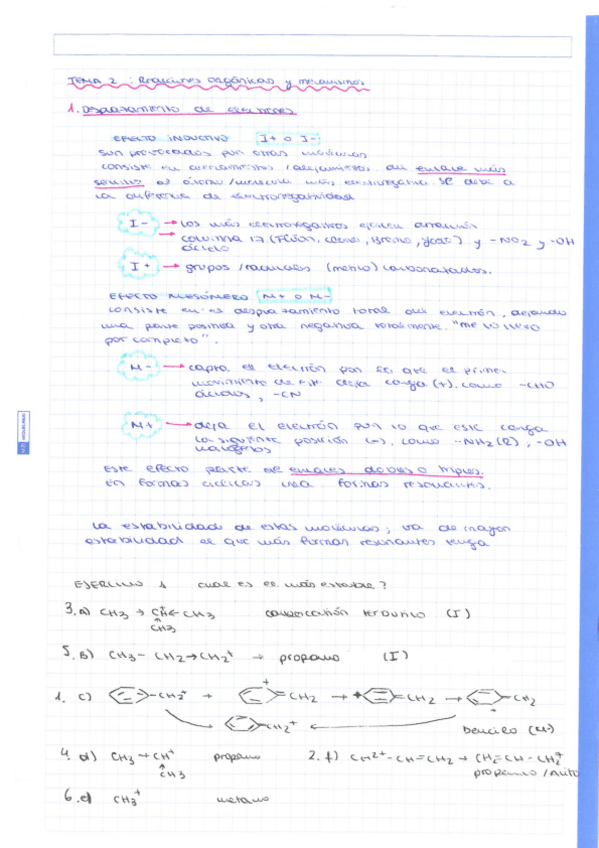 TEMA 2 : Reacciones orgánicas y mecanismos
1. Desplazamiento de electrones
EFECTO INDUCTIVO I+ o I-
son provocados por otras moléculas
consiste en acercamientos / alejamientos del enlace más
sencillo al átomo/molécula más electronegativa. Se debe a
la diferencia de electronegatividad
I- → Los más electronegativos ejercen atracción
→ columna 17 (Flúor, cloro, bromo, yodo) y -NO2 y -OH
ácido
I+ → grupos /radicales (metilo) carbonatados.
EFECTO MESÓMERO M+ o M-
consiste en el desplazamiento total del electrón, dejando
una parte positiva y otra negativa totalmente. "me lo llevo
por completo".
M- → capta el electrón por lo que el primer
movimiento de este deja carga (+). como -CHO
ácidos, -CN
M+ → deja el electrón por lo que este carga
la siguiente posición (-), como -NH2(R), -OH
halógenos
Este efecto parte de enlaces dobles o triples.
en formas cíclicas crea formas resonantes.
La estabilidad de estas moléculas; va de mayor
estabilidad el que más formas resonantes tenga
EJERCICIO 1 cual es el más estable?
3. a) CH3 → CH← CH3 carbocatión terciario (I)
CH3
5. b) CH3 - CH2→CH2+ → propano (I)
1. c) -CH2+ =CH2 → =CH2 → =CH2
+
=CH2+ Bencilo (M-)
4. d) CH3→CH+ propano 2. f) CH2+-CH=CH2 → CH2=CH-CH2+
CH3 propano /Alilo
6. e) CH3+ metano